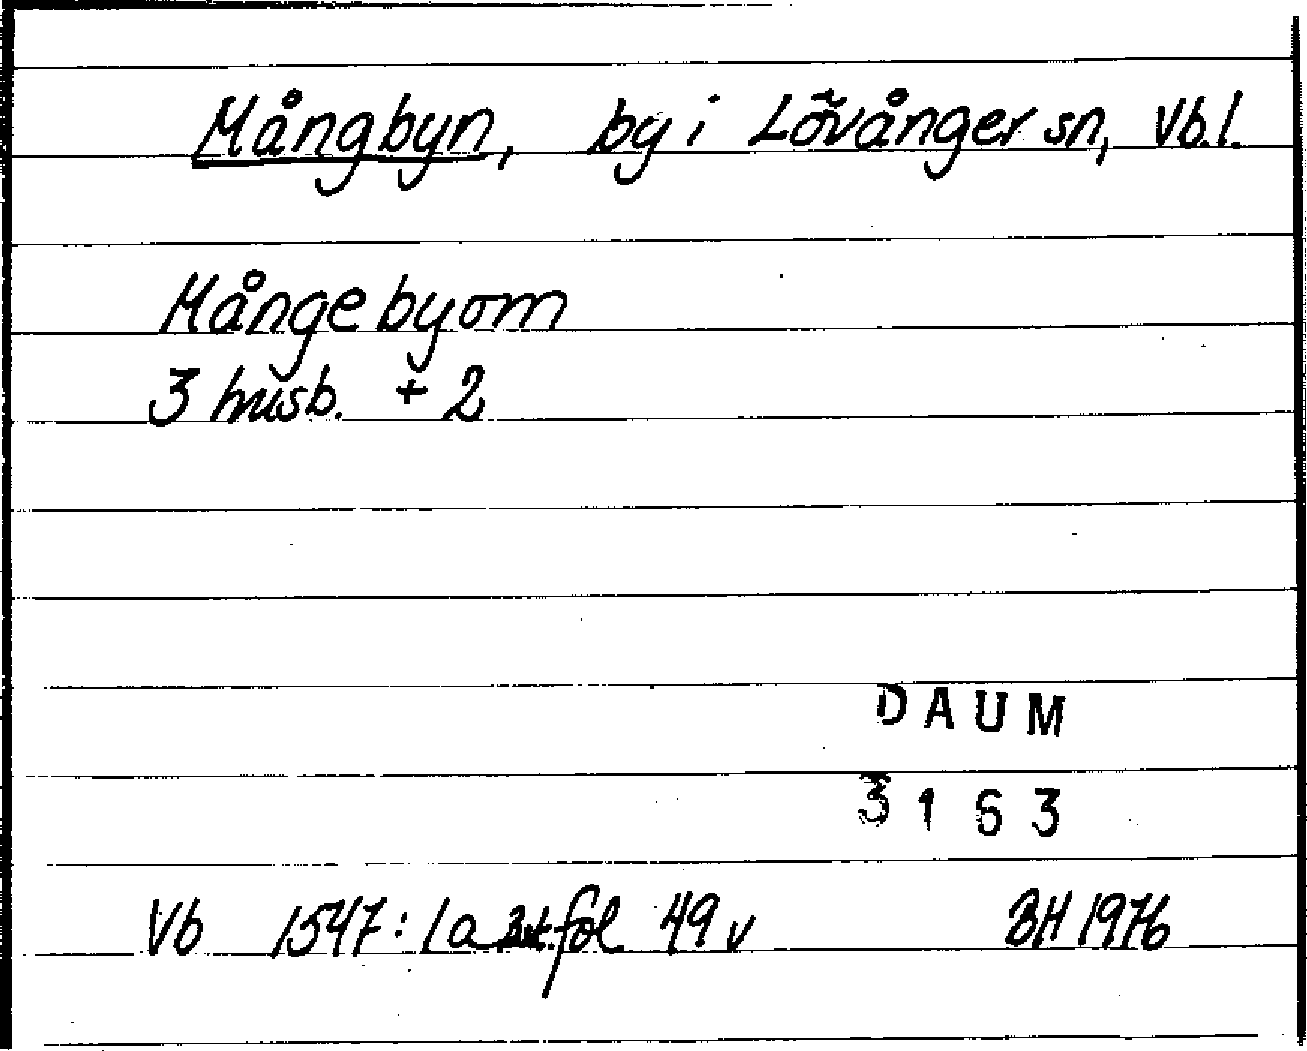 Mångbyn, by i Lövånger sn, Vb.l.
Mångebyom
3 husb. + 2
DAUM
3163
Vb 1547: 1a fol 49 v BH 1976